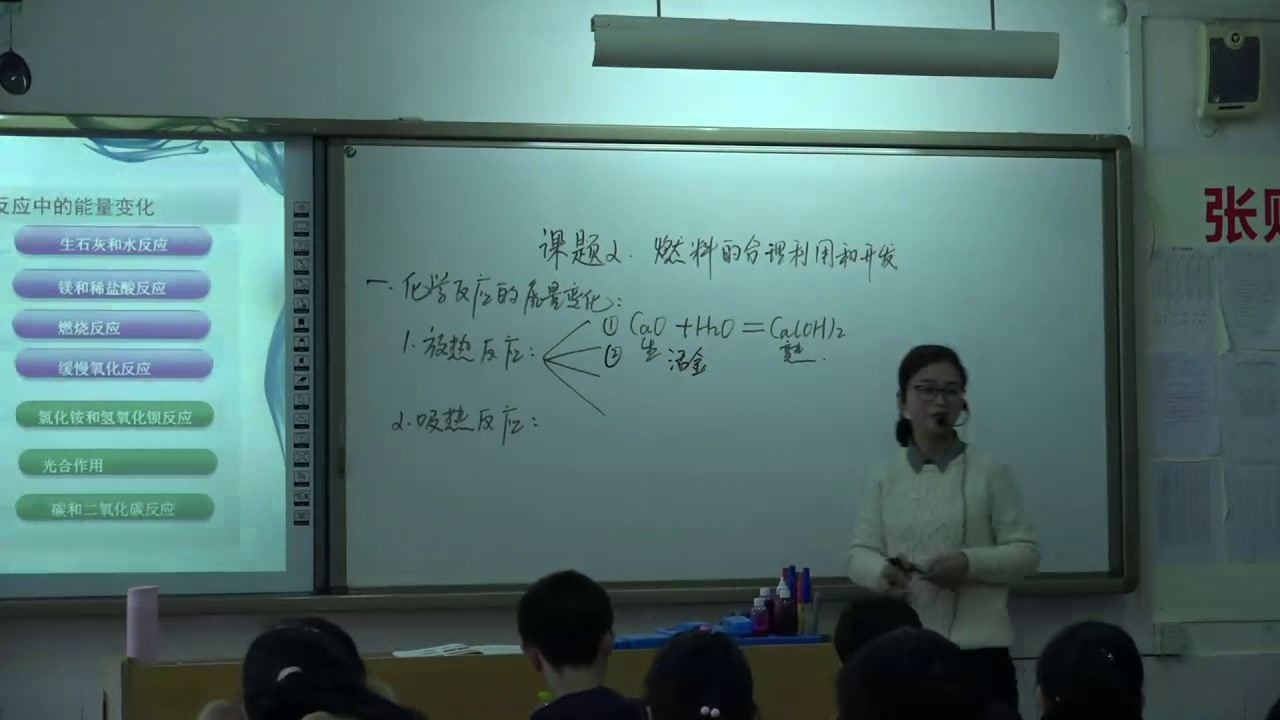 反应中的能量变化
生石灰和水反应
镁和稀盐酸反应
燃烧反应
缓慢氧化反应
氯化铵和氢氧化钡反应
光合作用
碳和二氧化碳反应
课题2. 燃料的合理利用和开发
一.化学反应的能量变化:
1.放热反应:
① CaO + H2O = Ca(OH)2
② 生 活金 熟.
2.吸热反应:
张